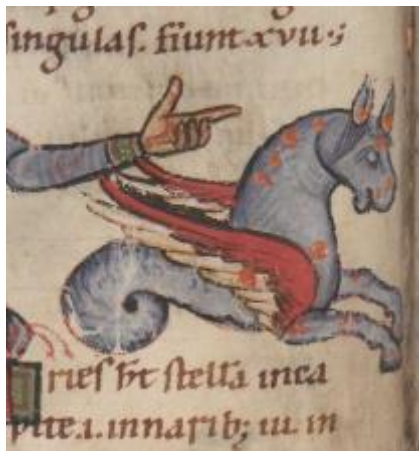 singulas. fiunt xvii.;
ries ht stella in ca
pite .i. in narib; iii. in